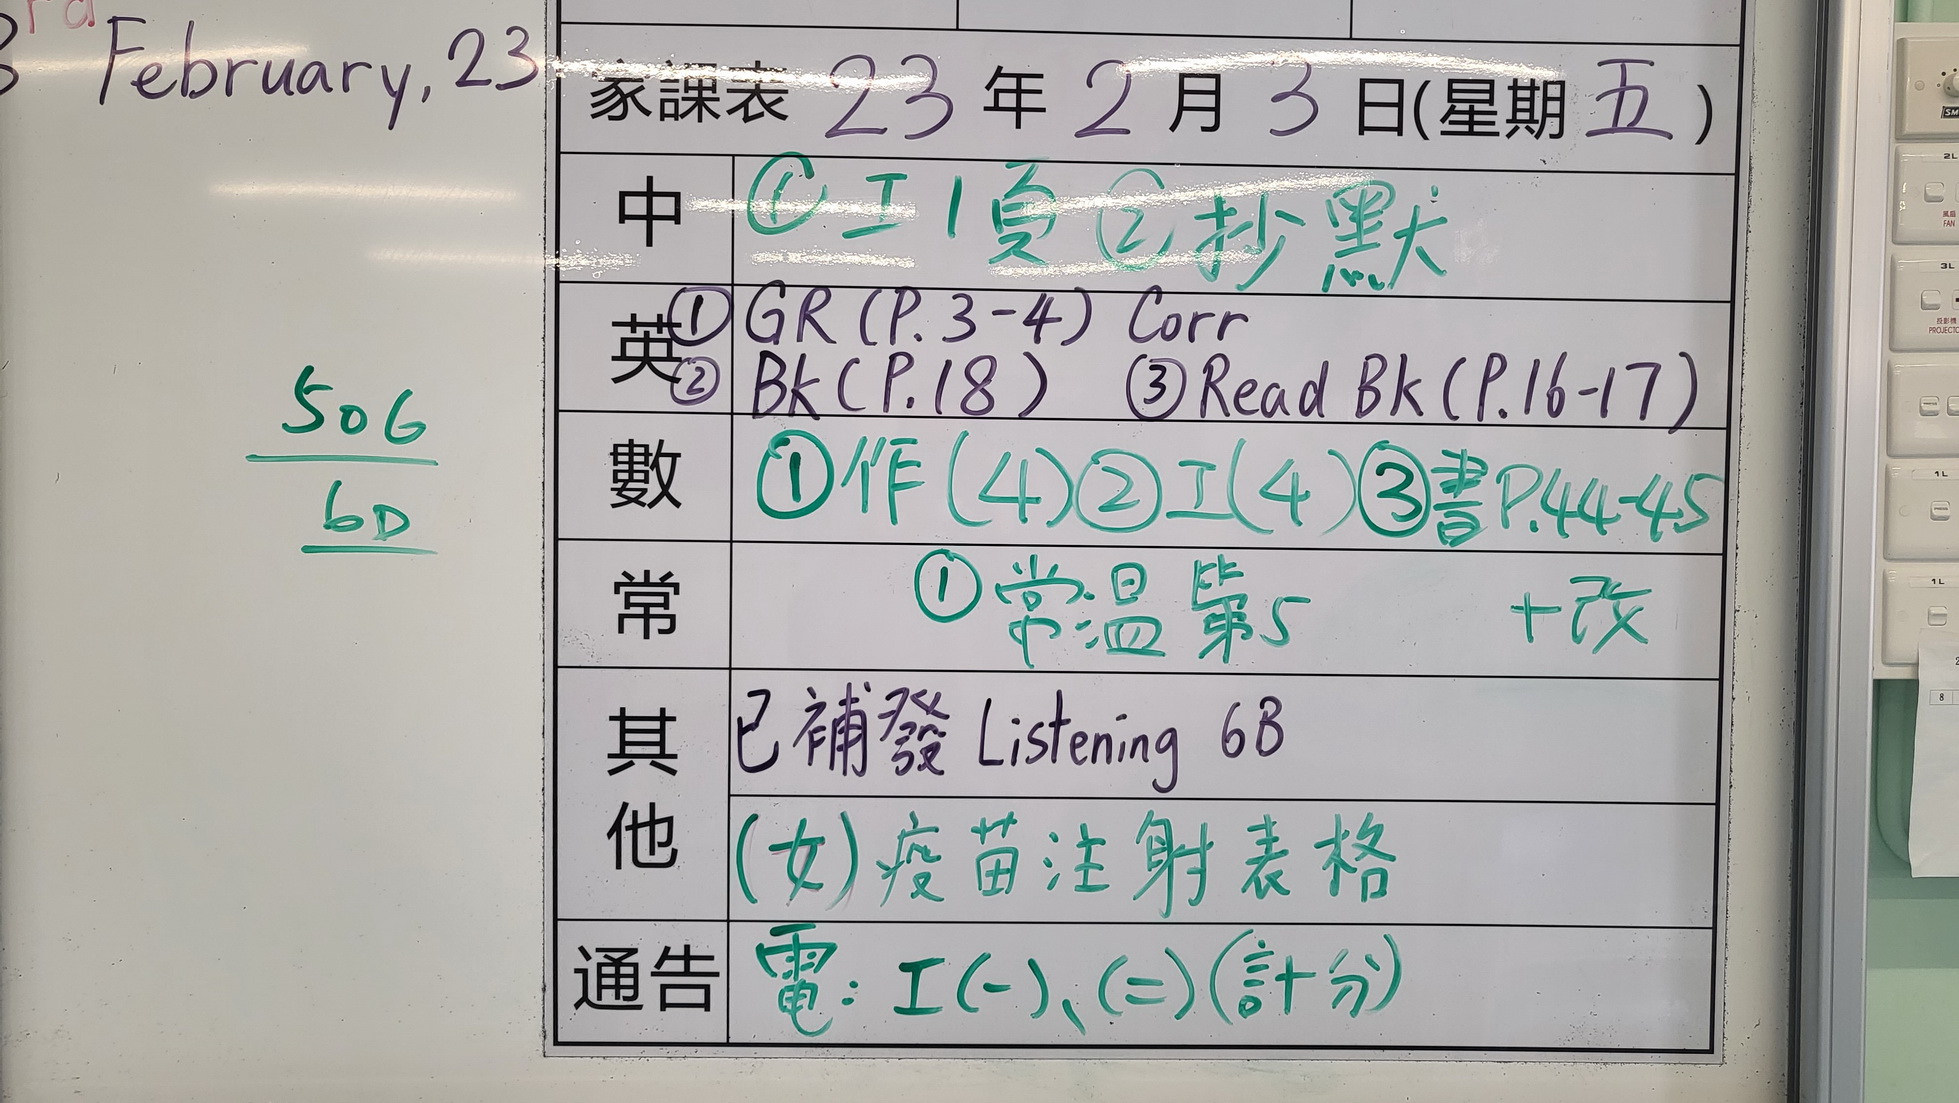 rd
3 February, 23
506
6D
家課表 23 年 2 月 3 日(星期 五 )
中 ①工1頁 ②抄默
英 ① GR (P.3-4) Corr
② Bk (P.18) ③ Read Bk (P.16-17)
數 ①作(4)②工(4)③書P.44-45
常 ①常温第5 +改
其他 已補發 Listening 6B
(女)疫苗注射表格
通告 電: 工(一)、(二)(計分)
2L
風扇
FAN
3L
投影機
1L
1L
8